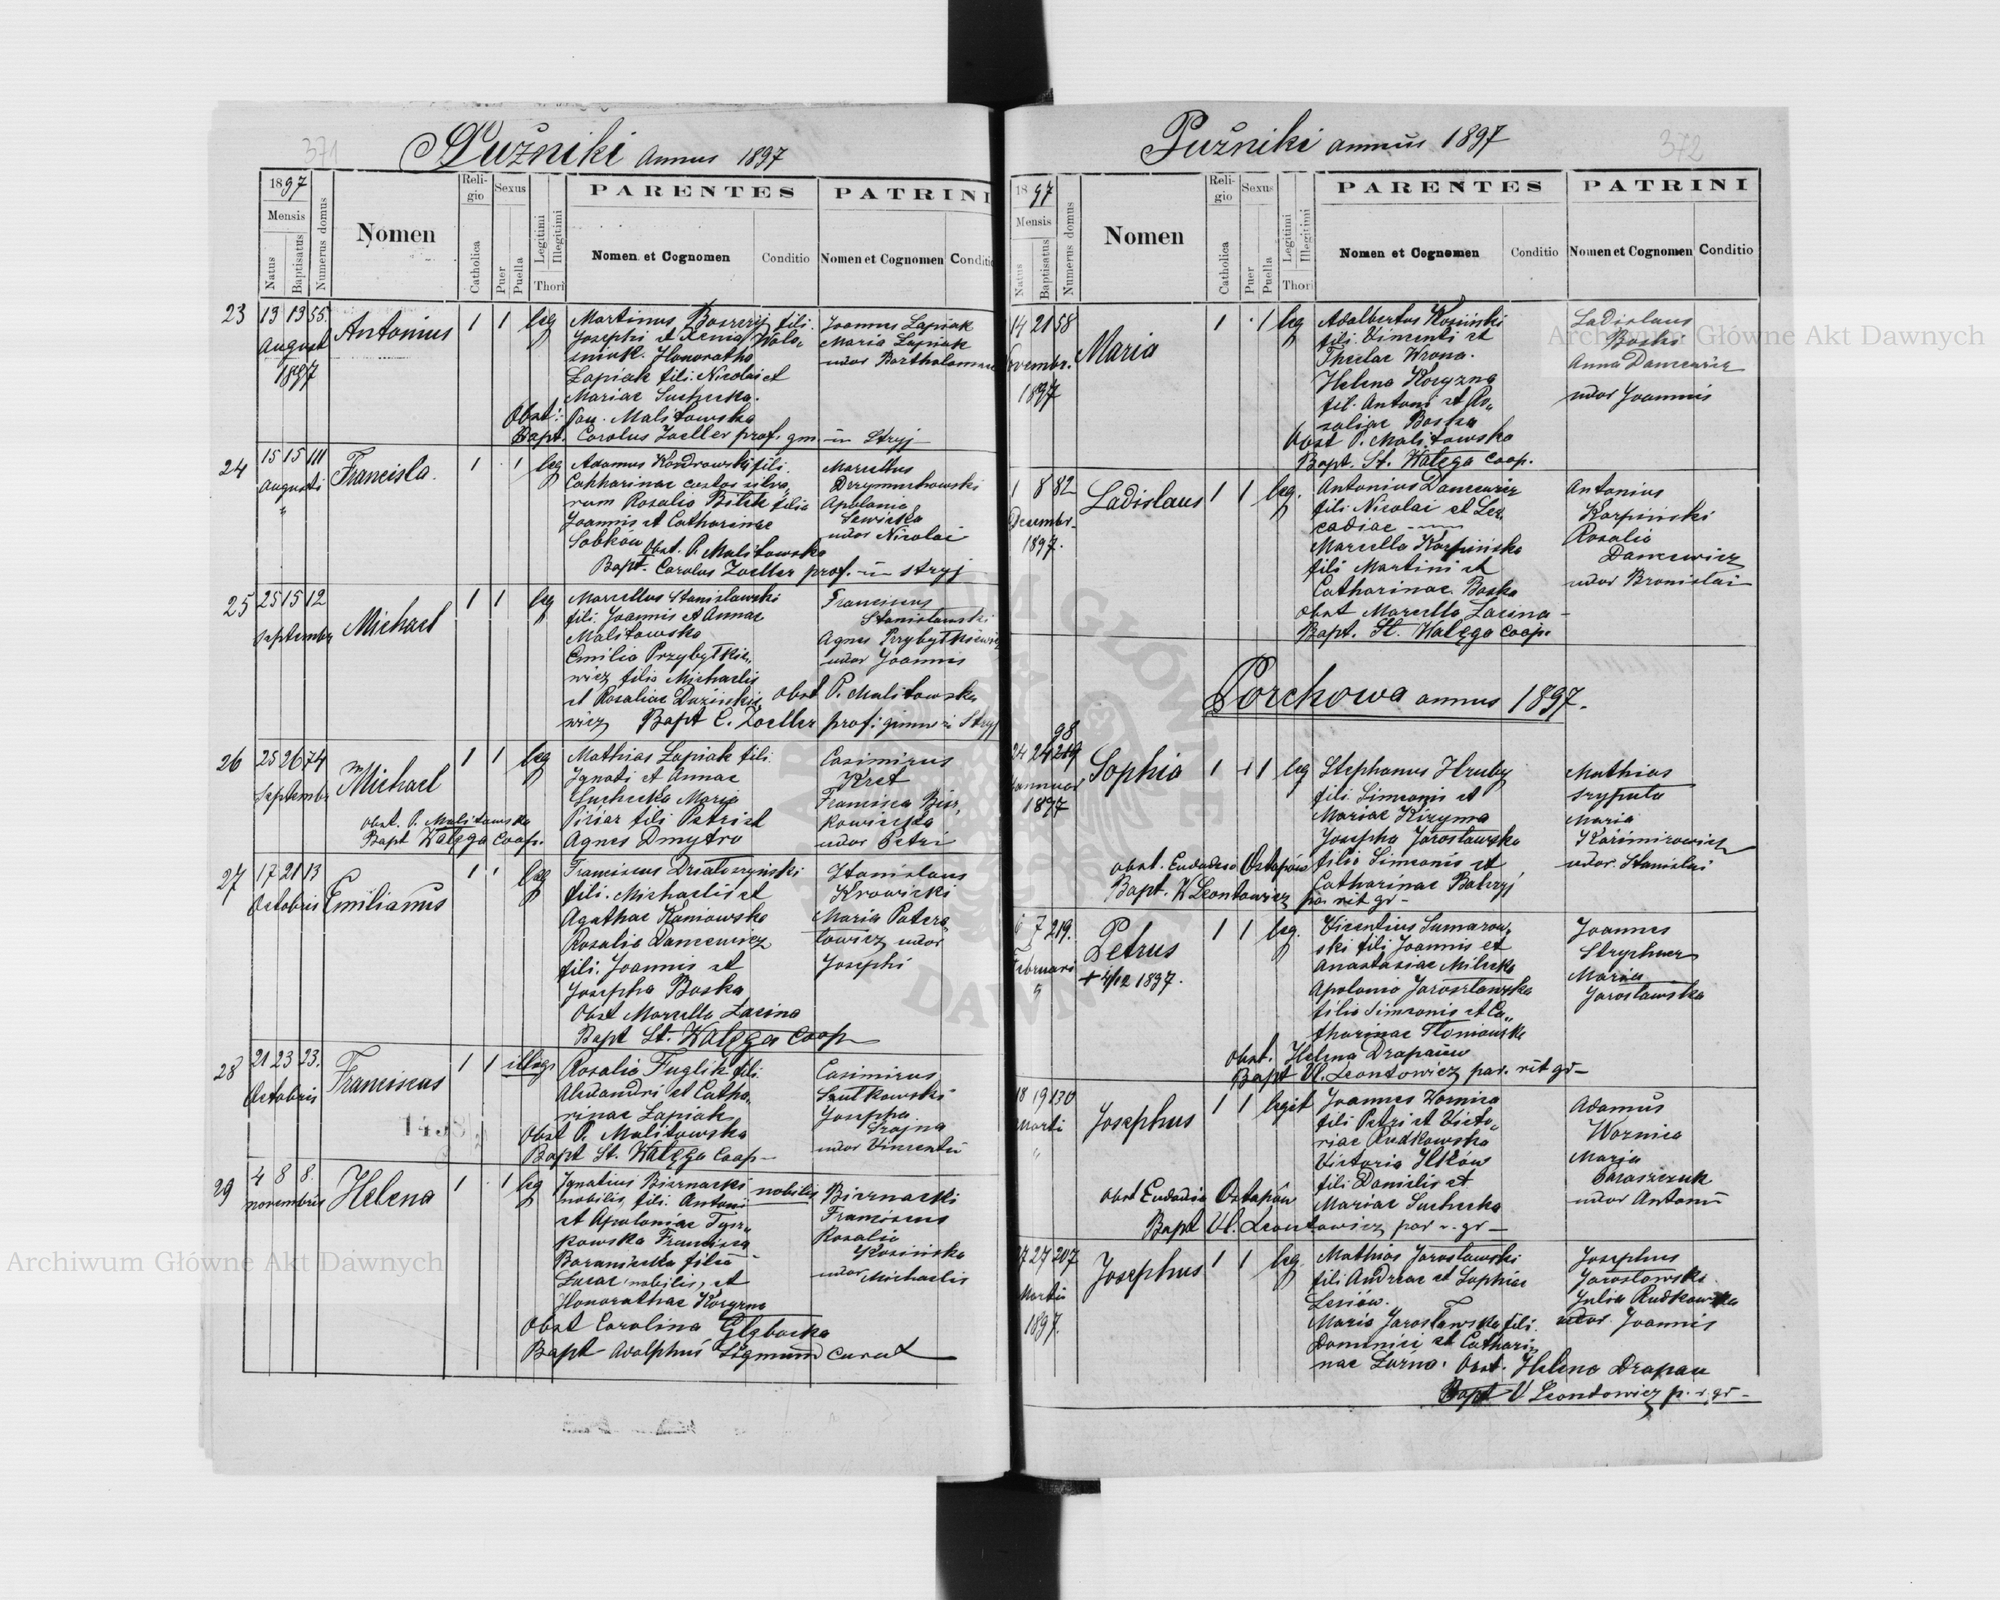 371
Pužniki annus 1897
1897
Mensis
Natus
Baptisatus
Numerus domus
Nomen
Religio
Catholica
Sexus
Puer
Puella
Legitimi
Illegitimi
Thori
PARENTES
Nomen et Cognomen
Conditio
PATRINI
Nomen et Cognomen
Conditio
23
13 13 55.
August
1897
Antonius
1 1 leg
Martinus Boszczij fili.
Josephi et Xenia Wolo„
sniuk. Honoratha
Łapiak fili. Nicolai et
Mariae Suchecka.
Obst: Pau. Malitowska
Bapt. Carolus Zoeller prof. gm. in Stryj
Joannes Łapiak
Maria Łapiak
uxor Bartholomaei
24
15 15 111
Augusti
"
Francisca.
1 1 leg
Adamus Kondrowski fili.
Catharinae custos silva„
rum Rosalia Bilek filia
Joannis et Catharinae
Sobkow
Obst. P. Malitowska
Bapt. Carolus Zoeller prof. in Stryj
Marcellus
Apolonia
Sewicka
uxor Nicolai
25
25 15 12
Septembr
Michael
1 1 leg
Marcellus Stanisławski
fili. Joannis et Annae
Malitowska
Emilia Przybytkie„
wicz filia Michaelis
et Rosaliae
wicz
Obst P. Malitowska
Bapt C. Zoeller prof. gimn. in Stryj
Franciscus
Stanisławski
Agnes Przybytkiewicz
uxor Joannis
26
25 26 74
Septembr
Michael
1 1 leg
Mathias Łapiak fili.
Ignati et Annae
Suchecka Maria
Pisiar fili Petri et
Agnes Dmytro
Obst. P. Malitowska
Bapt Wałęga Coop.
Casimirus
Kret
Francisca Bier„
kowiecka
uxor Petri
27
17 21 13
Octobris
Emilianus
1 1 leg
Franciscus Działoszyński
fili. Michaelis et
Agathae Koniowska
Rosalia Dancewicz
fili. Joannis et
Josepha Boska
Obst Marcella Łasina
Bapt St. Wałęga Coop
Stanislaus
Krowicki
Maria Patera„
łowicz uxor
Josephi
28
21 23 23.
Octobris
Franciscus
1 1 illeg
Rosalia Fuglik fili.
Alexandri et Catha„
rinae Łapiak
Obst P. Malitowska
Bapt St. Wałęga Coop.
Casimirus
Szutkowski
Josepha
Szajna
uxor Vincentii
29
4 8 8.
novembris
Helena
1 1 leg
Ignatius Biernacki nobilis
nobilis, fili. Antoni
et Apoloniae Tysz„
kowska Francisca
Baraniecka filia
Lucae nobilis, et
Honorathae Koryzna
Obst Carolina Głębocka
Bapt Adolphus Sigmund Curat
Biernacki
Franciscus
Rosalia
Kosińska
uxor Michaelis
372
Pužniki annus 1897
1897
Mensis
Natus
Baptisatus
Numerus domus
Nomen
Religio
Catholica
Sexus
Puer
Puella
Legitimi
Illegitimi
Thori
PARENTES
Nomen et Cognomen
Conditio
PATRINI
Nomen et Cognomen
Conditio
14 21 58
Novembr.
1897
Maria
1 1 leg
Adalbertus Kosiński
fili. Vincenti et
Theclae Wrona.
Helena Koryzna
fil. Antoni et Ro„
saliae Boska
Obst P. Malitowska
Bapt. St. Wałęga Coop.
Ladislaus
Boski
Anna Dancewicz
uxor Joannis
1 8 82
Decembr.
1897.
Ladislaus
1 1 leg.
Antonius Dancewicz
fili Nicolai et Leo
cadiae
Marcella Karpińska
fili Martini et
Catharinae Boska
Obst Marcella Łasina
Bapt. St. Wałęga Coop.
Antonius
Karpiński
Rosalia
Dancewicz
uxor Bronislai
Porchowa annus 1897.
98
24 24 219
Januar
1897
Sophia
1 1 leg
Stephanus Hruby
fili. Simeonis et
Mariae Kizyma
Josepha Jarosławska
filia Simeonis et
Catharinae Batryj
Obst. Eudoxia Ostapów
Bapt. W Leontowicz par. rit gr
Mathias
Szypula
Maria
Kazimirowicz
uxor. Stanislai
6 7 219.
Februari
Petrus
+ 4/12 1897.
1 1 leg.
Vicentius Sumarow„
ski fili Joannis et
Anastasiae Milecka
Apolonia Jarosławska
filia Simeonis et Ca„
tharinae Tłoniowska
Obst. Helena Drapaiew
Bapt Vl. Leontowicz par. rit gr
Joannes
Strychuez
Maria
Jarosławska
18 19 130
Marti
"
Josephus
1 1 legit
Joannes Wornica
fili Petri et Victo„
riae Rudkowska
Victoria Ilków
fili Danielis et
Mariae Suchecka
Obst Eudoxia Ostapów
Bapt Vl. Leontowicz par r. gr
Adamus
Woznica
Maria
Paraszczuk
uxor Antoni
27 27 207
Martii
1897.
Josephus
1 1 leg.
Mathias Jarosławski
fili Andreae et Sophiae
Lesiów.
Maria Jarosławska fili.
Dominici et Cathari„
nae Łoźna. Obst. Helena Drapau
Bapt V Leontowicz p. r. gr
Josephus
Jarosławski
Julia Rudkowska
uxor Joannis
Archiwum Główne Akt Dawnych
Archiwum Główne Akt Dawnych